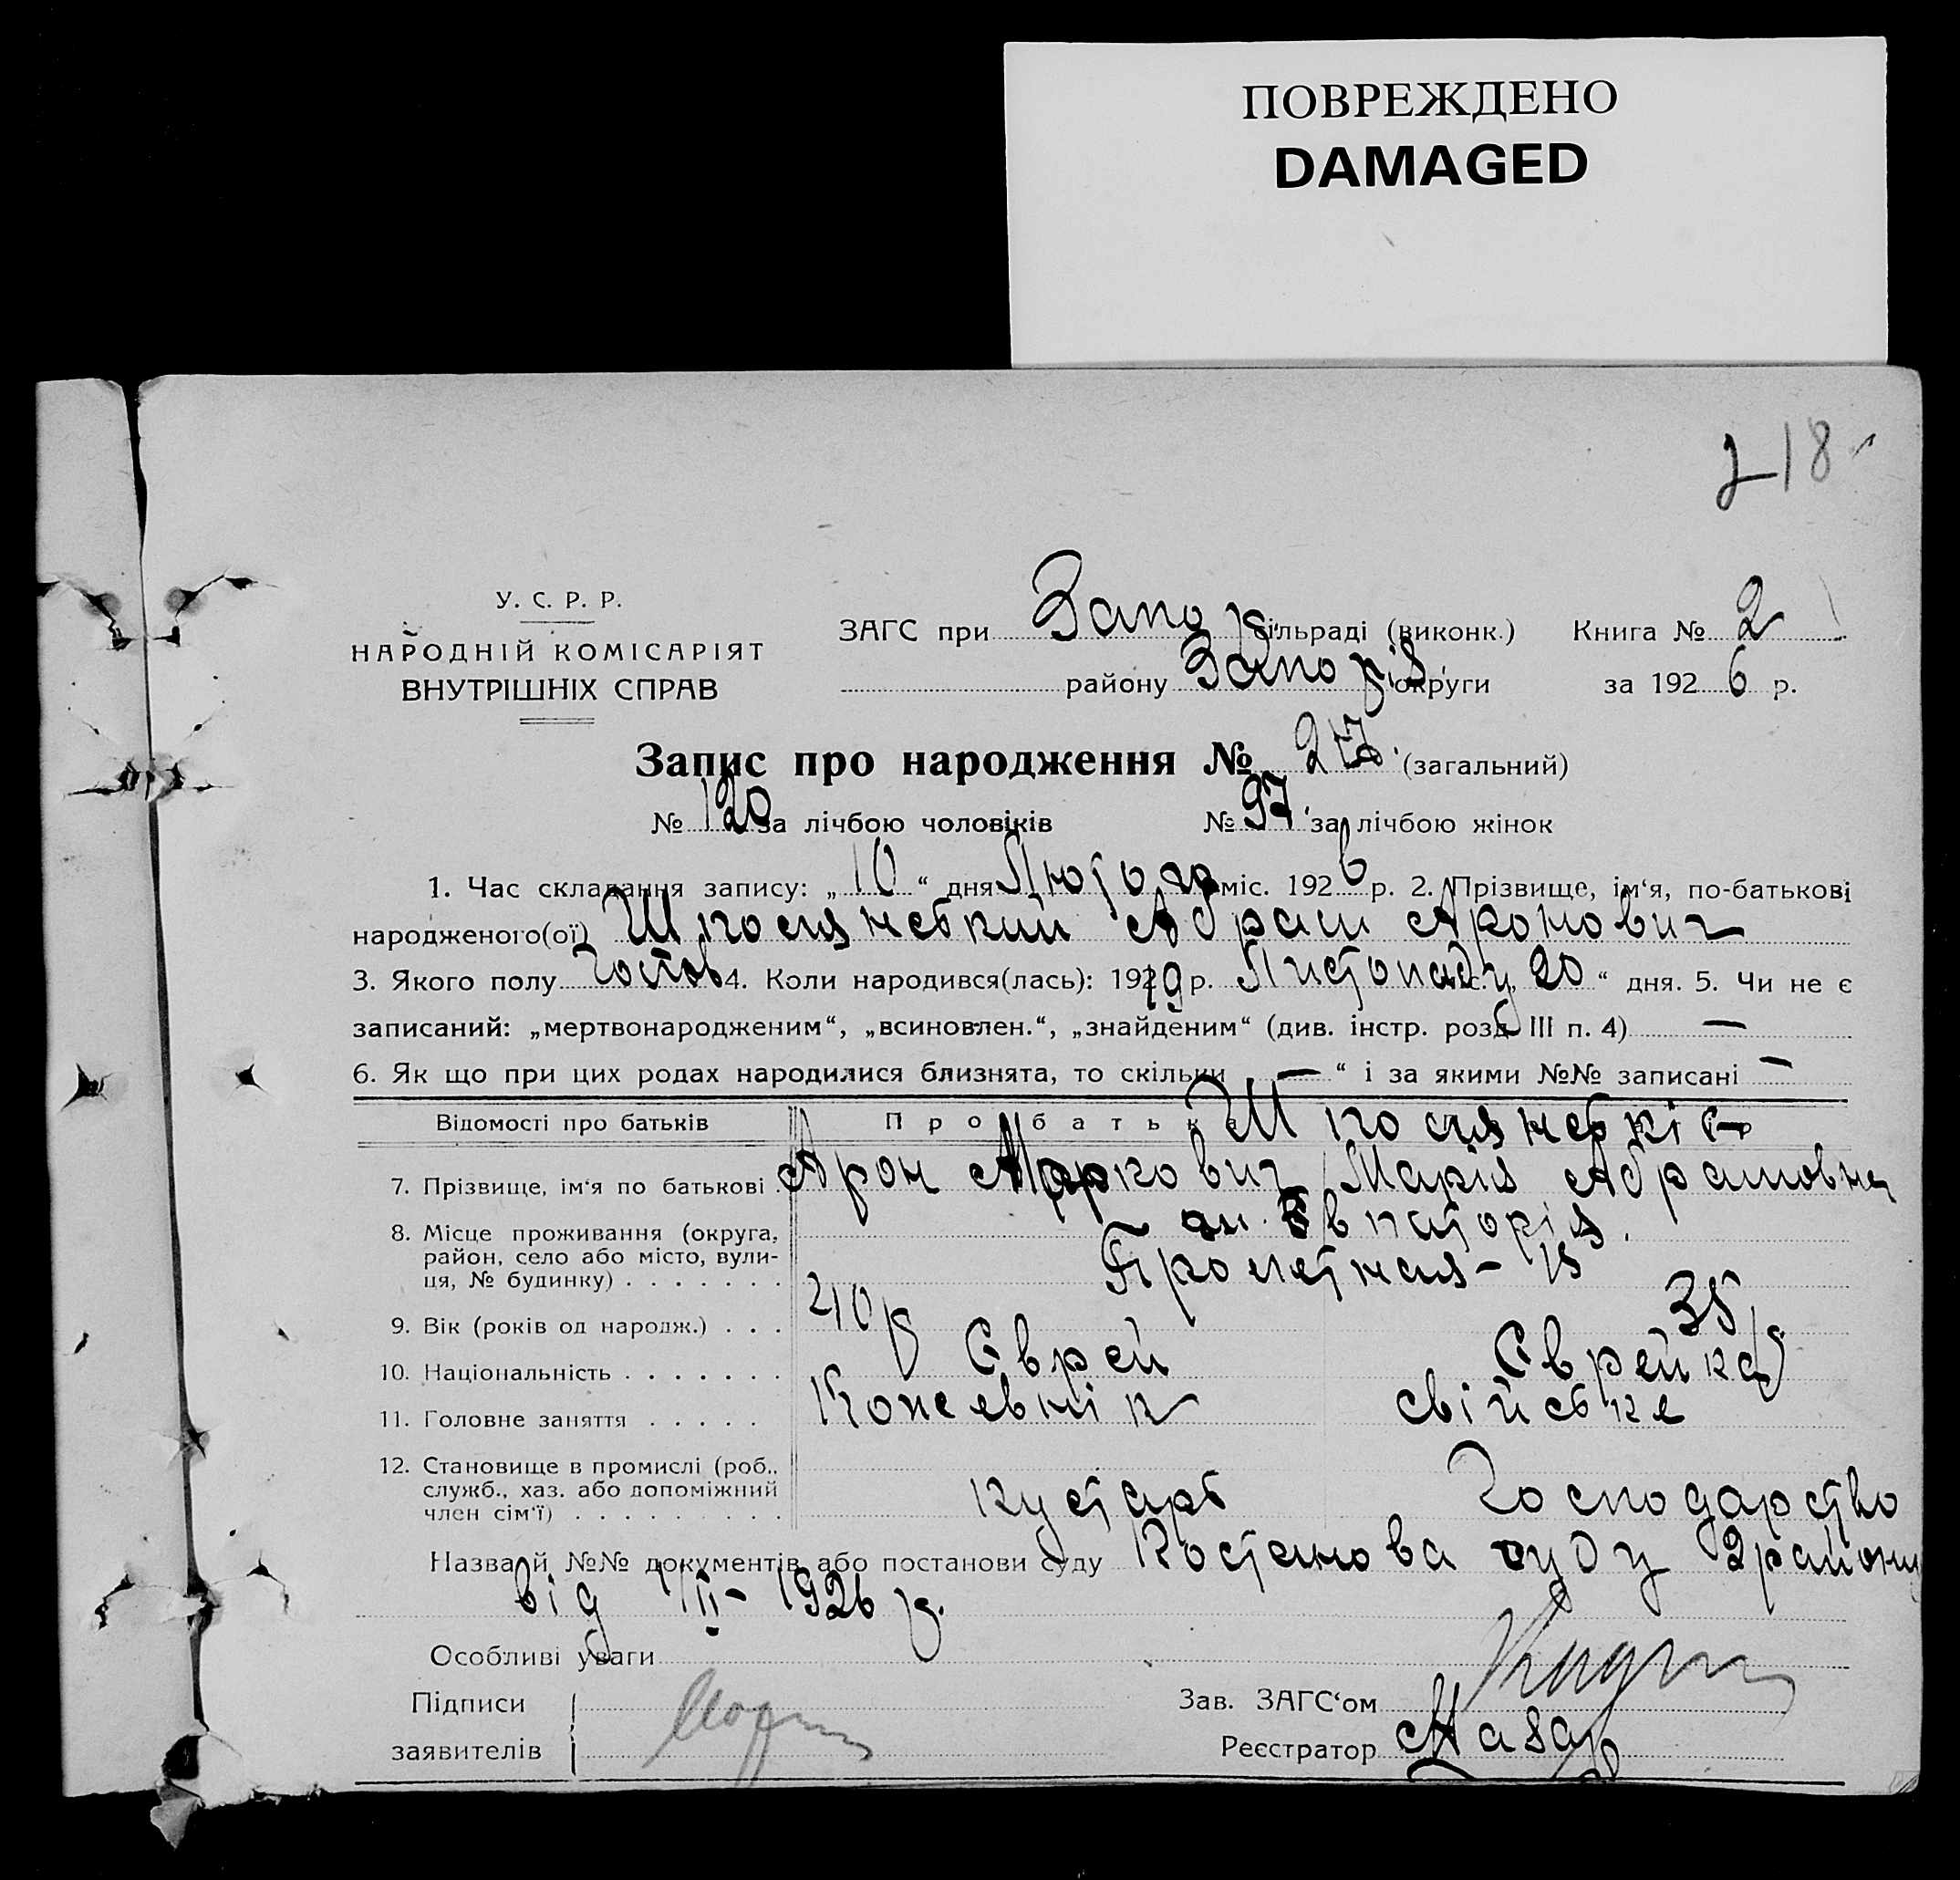 ПОВРЕЖДЕНО
DAMAGED
218
У. С. Р. Р.
НАРОДНІЙ КОМІСАРІЯТ
ВНУТРІШНІХ СПРАВ
ЗАГС при Запор. сільраді (виконк.) Книга № 2
району Запоріз. округи за 1926 р.
Запис про народження № (загальний)
№ 120 за лічбою чоловіків № 97 за лічбою жінок
1. Час складання запису: „10“ дня Лютого міс. 1926 р. 2. Прізвище, ім‘я, по-батькові
народженого(ої) Абрам Аронович
3. Якого полу чолов 4. Коли народився(лась): 1919 р. Листопаду 20 “ дня. 5. Чи не є
записаний: „мертвонародженим“, „всиновлен.“, „знайденим“ (див. інстр. розд III п. 4) —
6. Як що при цих родах народилися близнята, то скільки — “ і за якими №№ записані —
Відомості про батьків Про батька
7. Прізвище, ім‘я по батькові Арон Маркович Марія Абрамовна
8. Місце проживання (округа, район, село або місто, вулиця, № будинку) м. Євпаторія.
9. Вік (років од народж.) 40 р 35 р
10. Національність Єврей Єврейка
11. Головне заняття Кожевнік свійське
12. Становище в промислі (роб., служб., хаз. або допоміжний член сім‘ї) кустарь Господарство
Назва й №№ документів або постанови суду Постанова суду 2 району
від 1/II - 1926 р.
Особливі уваги
Підписи
заявителів
Зав. ЗАГС‘ом
Реєстратор Назар